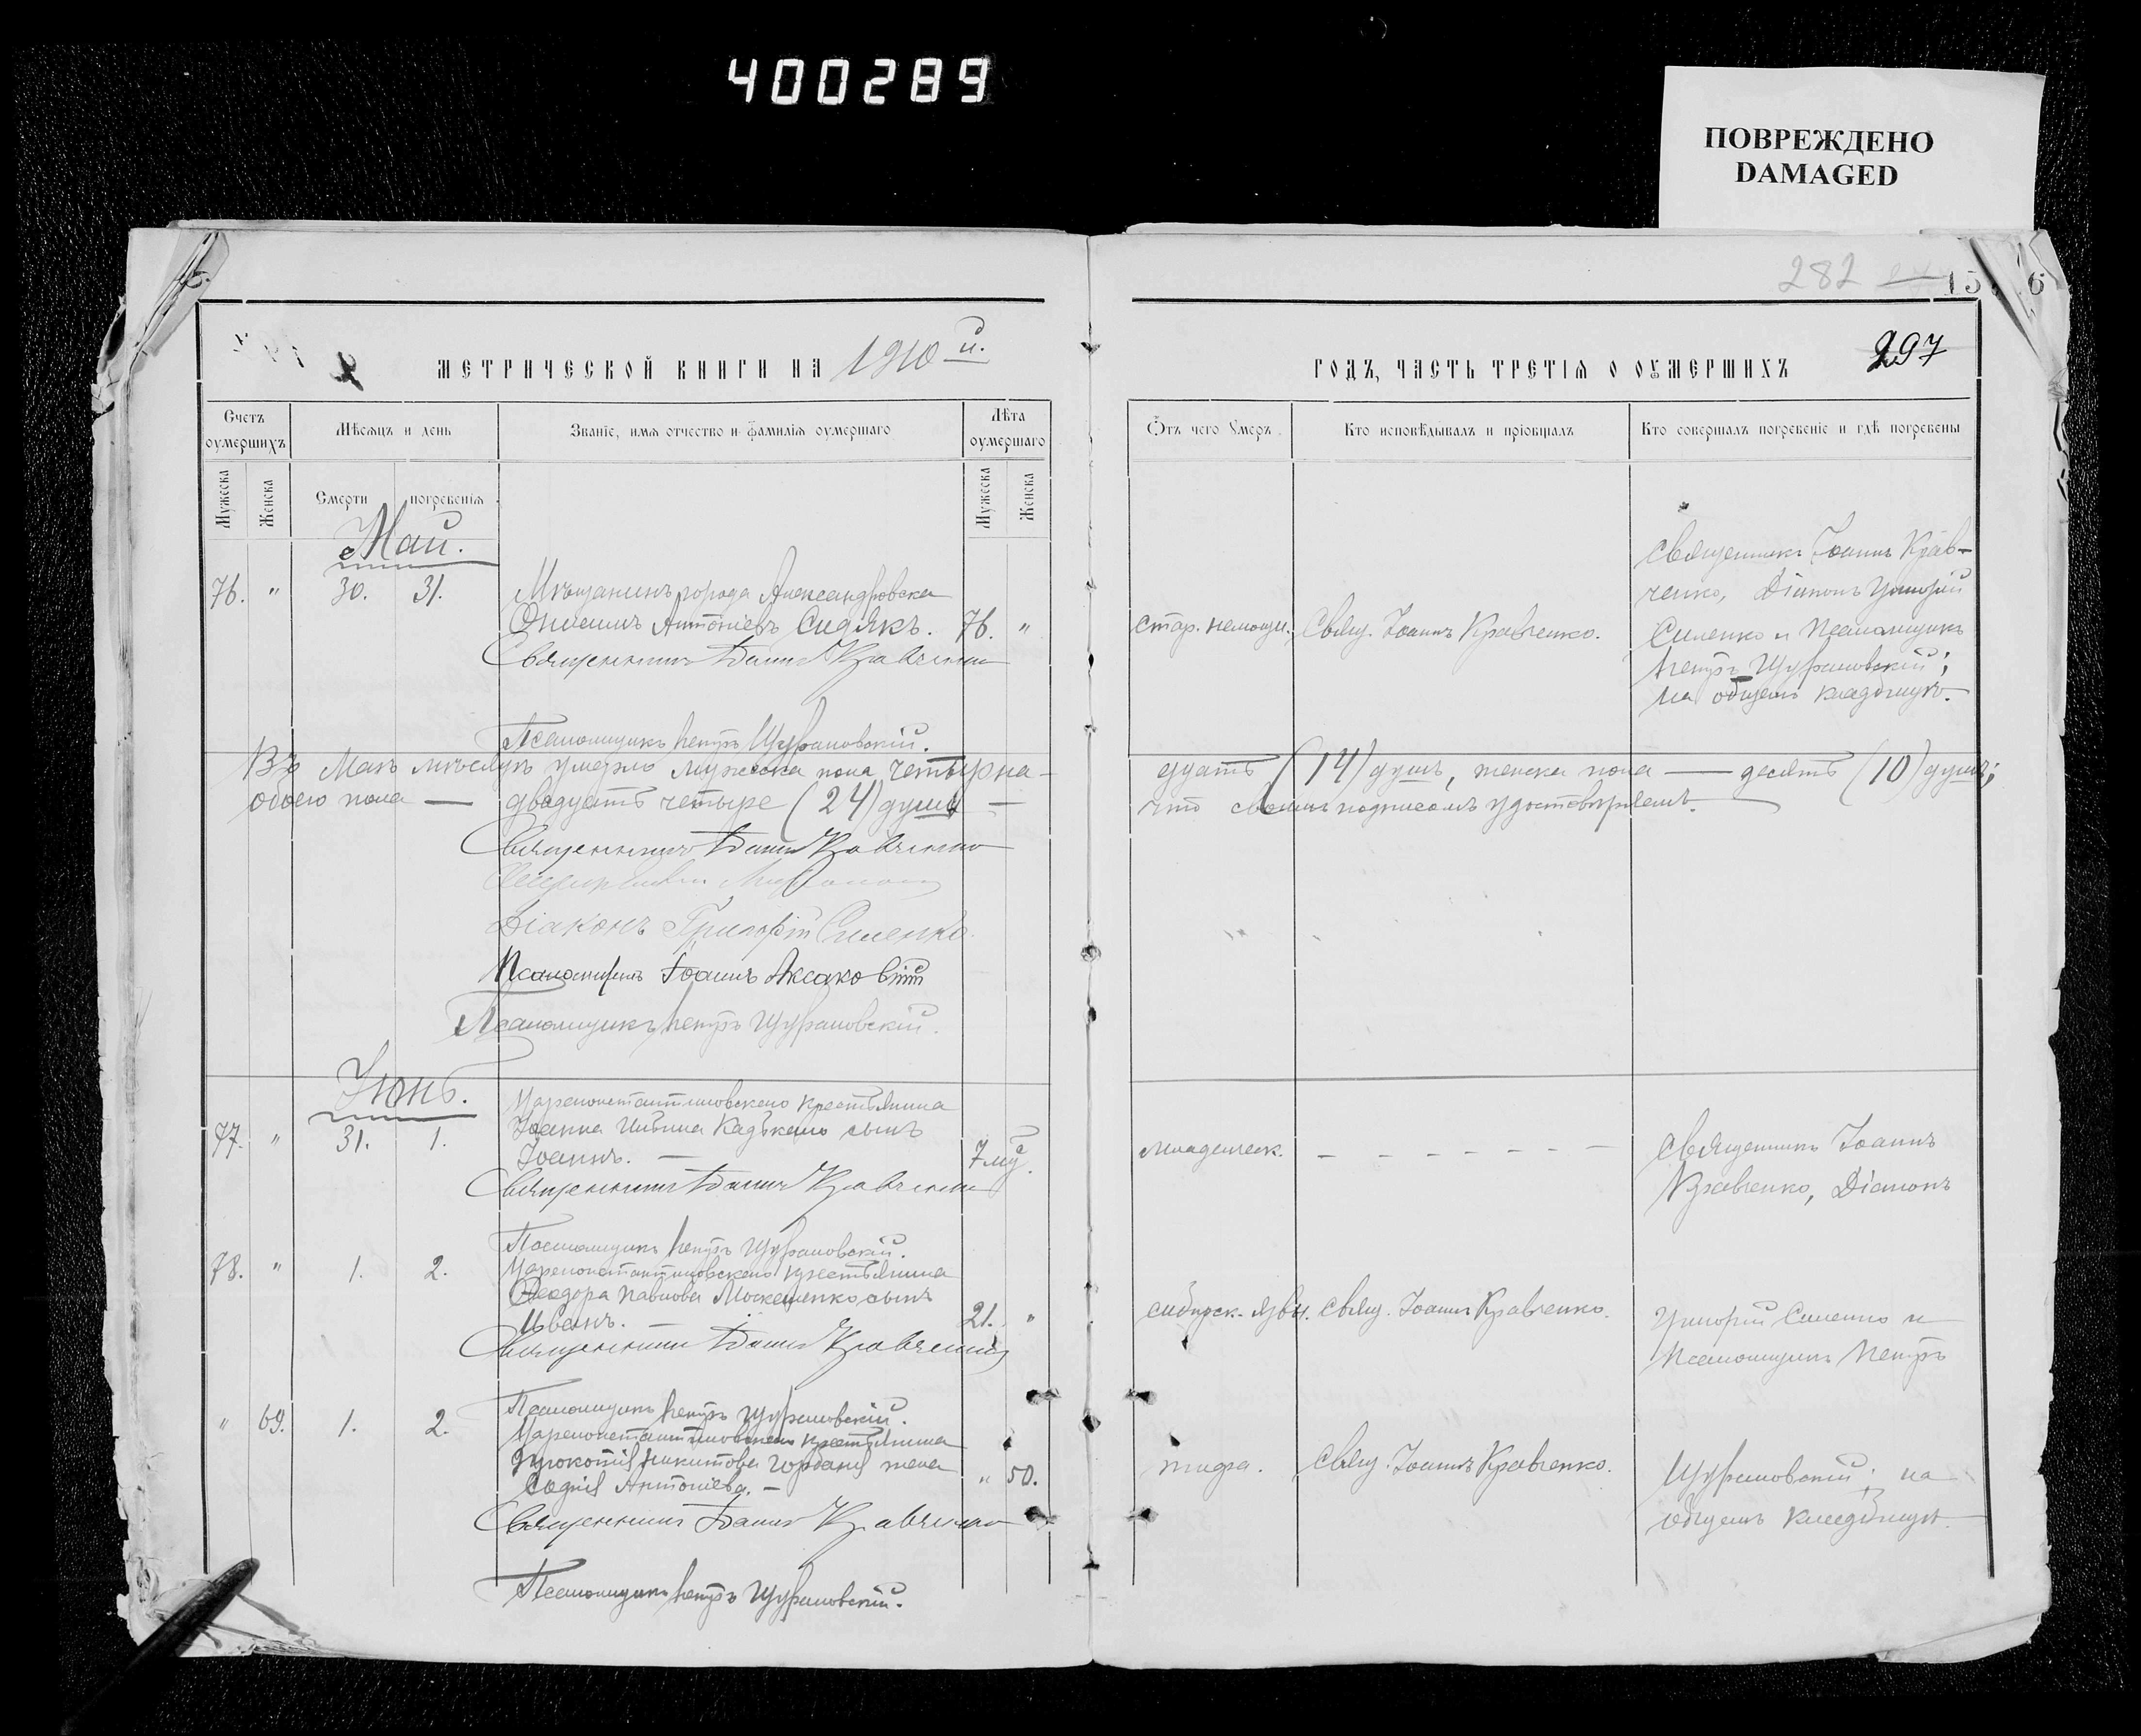 400289
ПОВРЕЖДЕНО
DAMAGED
282
15 6
297
МЕТРИЧЕСКОЙ КНИГИ НА 1910 й.
ГОДЪ, ЧАСТЬ ТРЕТІѦ О ОУМЕРШИХЪ
Счетъ оумершихъ
Мѣсѧцъ и день
Званїе, имѧ отчество и фамилїѧ оумершаго
Лѣта оумершаго
Ѿтъ чего Умеръ.
Кто исповѣдывалъ и прїобщалъ
Кто совершалъ погребенїе и гдѣ погребены
Мужеска
Женска
Смерти
погребенїѧ
Мужеска
Женска
Май.
76. " 30. 31.
Мѣщанинъ города Александровска
Онисимъ Антоніевъ Сидякъ. 76. "
Священникъ Іоаннъ Кравченко
Псаломщикъ Петръ Щурановскій.
стар. немощи.
Свящ. Іоаннъ Кравченко.
Священникъ Іоаннъ Крав-
ченко, Діаконъ Григорій
Силенко и Псаломщикъ
Петръ Щурановскій;
на общемъ кладбищѣ.
Въ Маѣ мѣсяцѣ умерло мужеска пола четырна-
дцать (14) душъ, женска пола — десять (10) душъ;
обоего пола — двадцать четыре (24) душы —
что своимъ подписомъ удостовѣряемъ.
Священникъ Іоаннъ Кравченко
Діаконъ Григорій Силенко.
Псаломщикъ Іоаннъ
Псаломщикъ Петръ Щурановскій.
Іюнь.
77. " 31. 1.
Цареконстантиновскаго крестьянина
Іоанна сынъ
Іоаннъ. — 7 мц.
Священникъ Іоаннъ Кравченко
Псаломщикъ Петръ Щурановскій.
младенческ. — — — — — — —
Священникъ Іоаннъ
Кравченко, Діаконъ
78. " 1. 2.
Цареконстантиновскаго крестьянина
Ѳеодора Павлова сынъ
Иванъ. — 21. "
Священникъ Іоаннъ Кравченко
Псаломщикъ Петръ Щурановскій.
сибирск. язвы.
Свящ. Іоаннъ Кравченко.
Григорій Силенко и
Псаломщикъ Петръ
" 69. 1. 2.
Цареконстантиновскаго крестьянина
Прокопія Никитова жена
Софія Антоніева. — " 50.
Священникъ Іоаннъ Кравченко
Псаломщикъ Петръ Щурановскій.
тифа.
Свящ. Іоаннъ Кравченко.
Щурановскій; на
общемъ кладбищѣ.